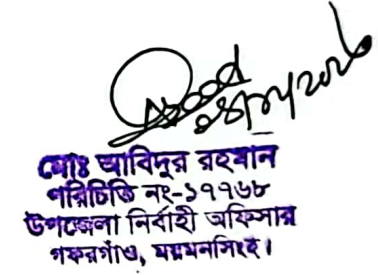 মোঃ আবিদুর রহমান
পরিচিতি নং-১৭৭৬৮
উপজেলা নির্বাহী অফিসার
গফরগাঁও, ময়মনসিংহ।